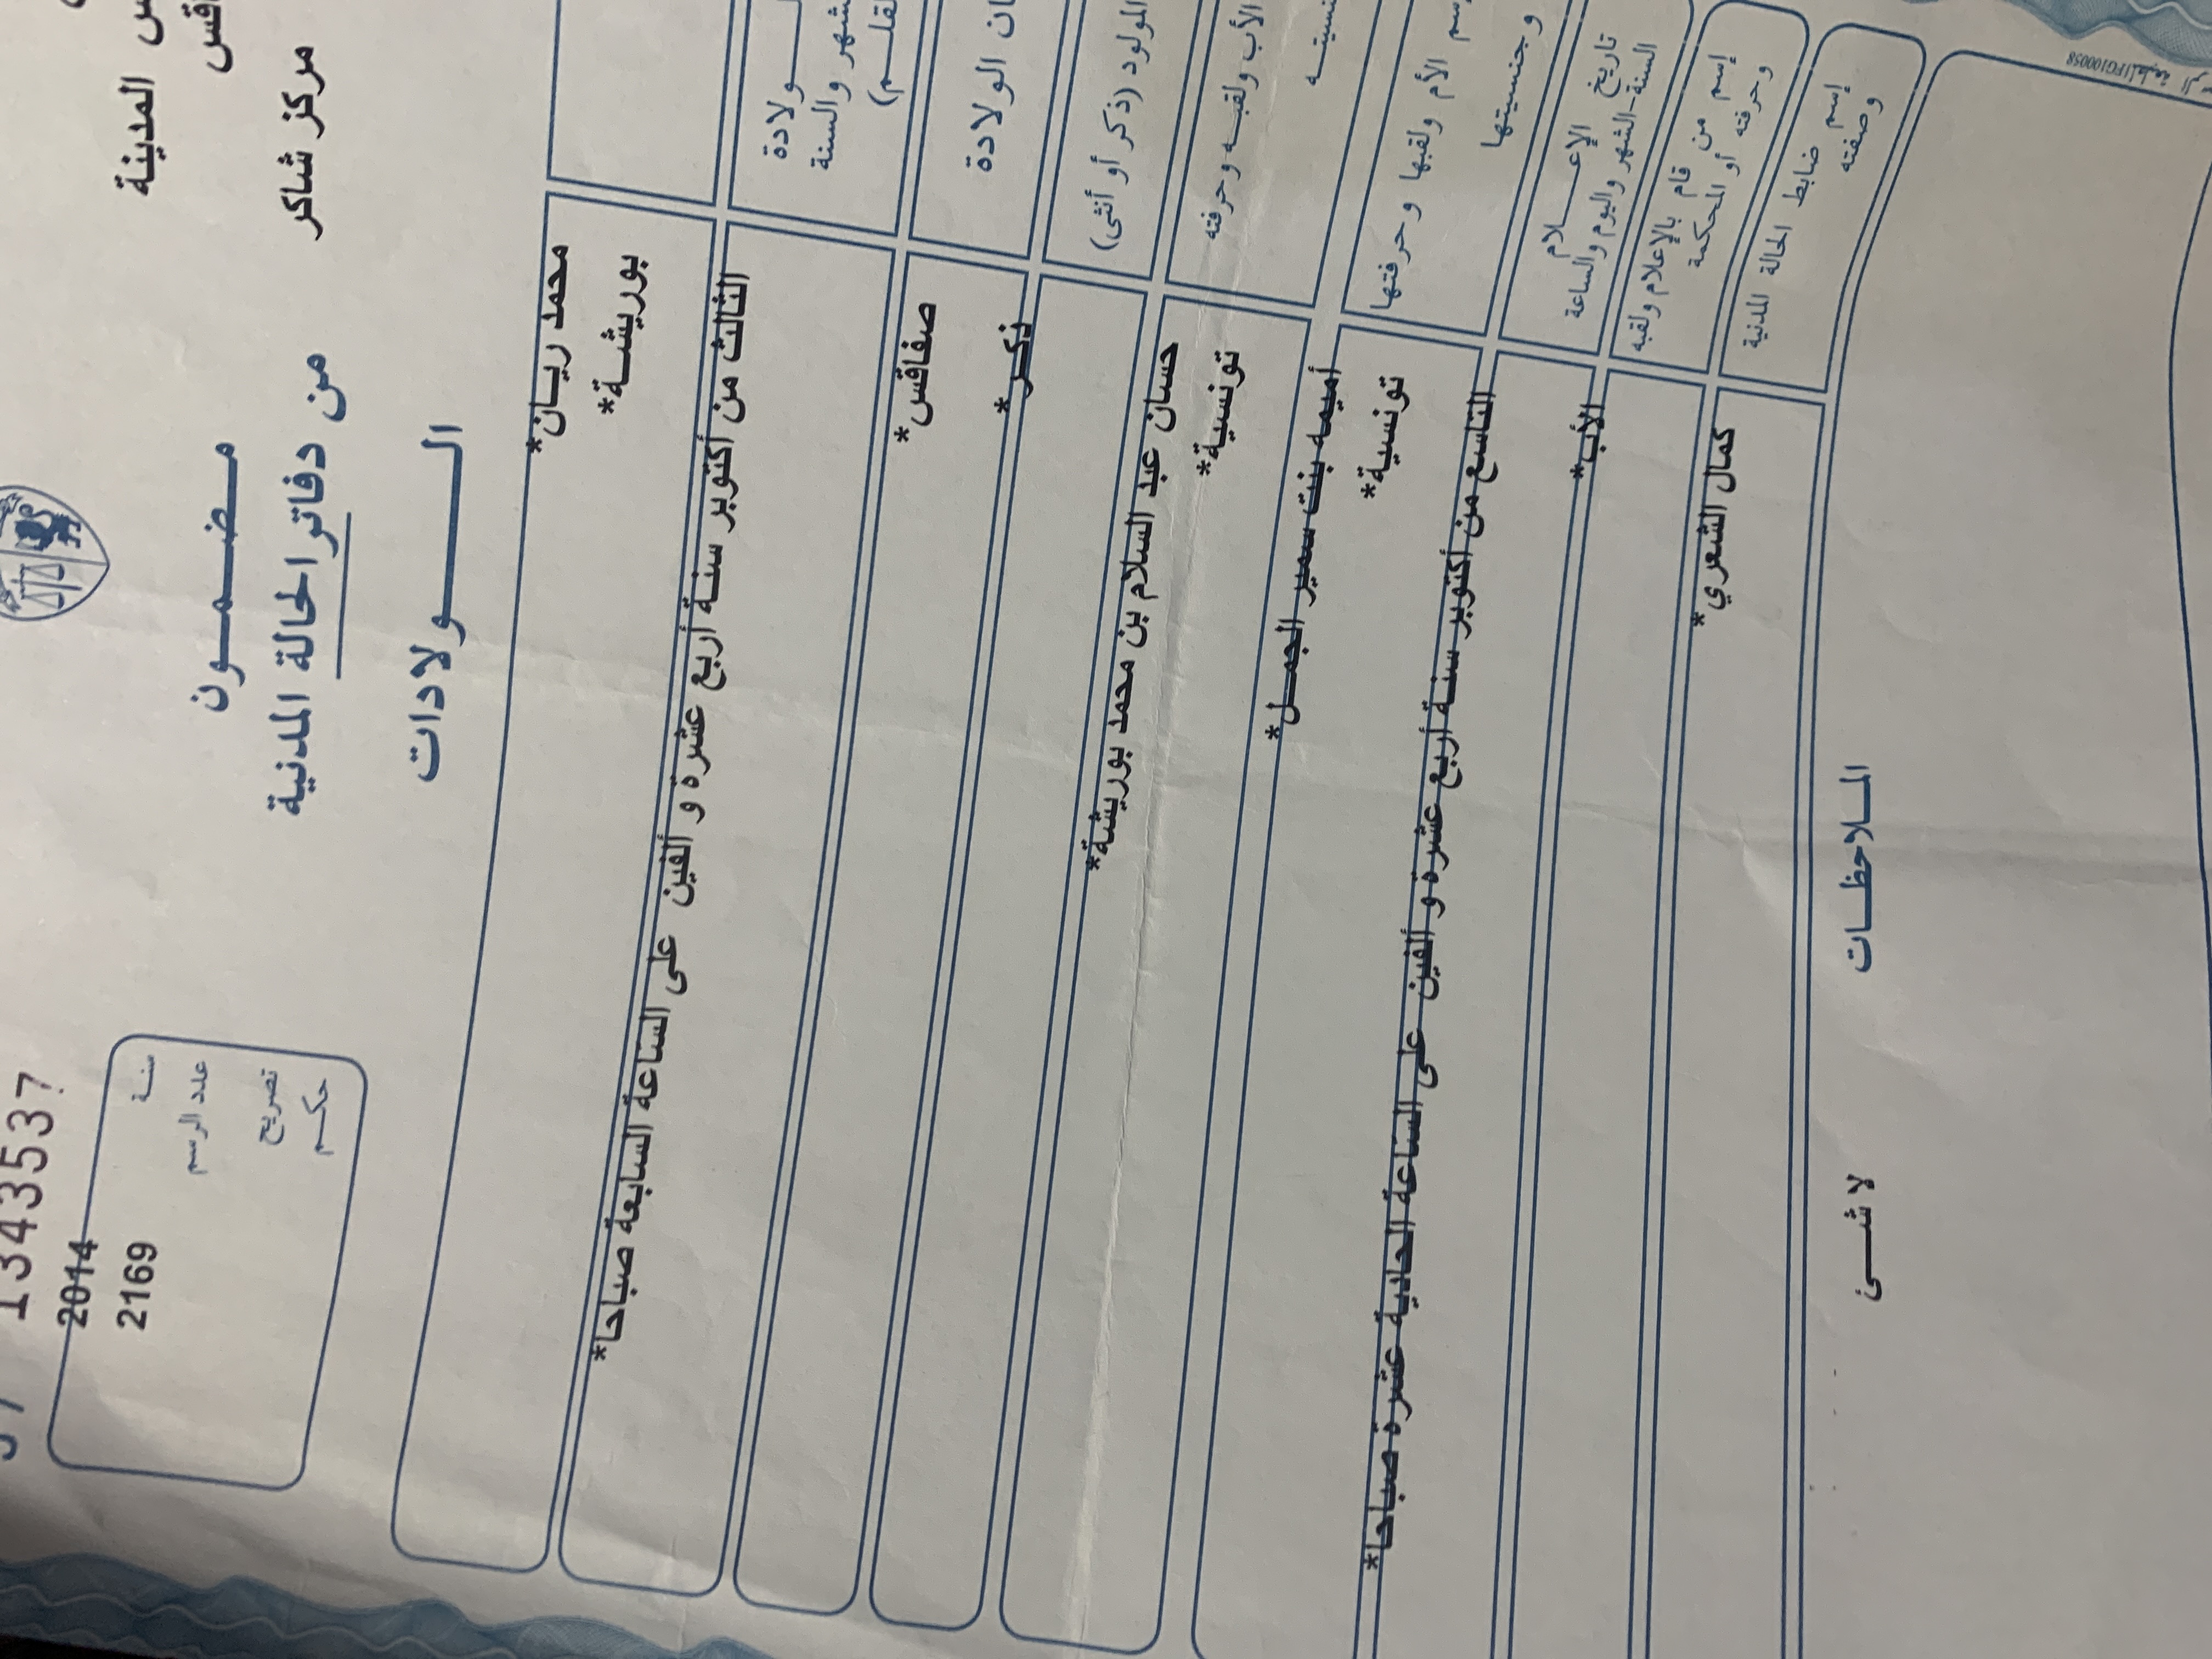 المدينة
مركز شاكر
1343537
2014 سنة
2169 عدد الرسم
تصريح
حكم
مضمون
من دفاتر الحالة المدنية
الولادات
محمد ريان*
بوريشة*
الثالث من أكتوبر سنة أربع عشرة و ألفين على الساعة السابعة صباحا*
والسنة
الولادة
صفاقس*
المولود (ذكر أو أنثى)
ذكر*
الأب ولقبه وحرفته
حسان عبد السلام بن محمد بوريشة*
تونسية*
الأم ولقبها وحرفتها
وجنسيتها
أميمه بنت سمير الجمل*
تونسية*
تاريخ الإعلام
السنة-الشهر واليوم والساعة
التاسع من أكتوبر سنة أربع عشرة و ألفين على الساعة الحادية عشرة صباحا*
إسم من قام بالإعلام ولقبه
وحرفته أو المحكمة
الأب*
إسم ضابط الحالة المدنية
وصفته
كمال الشعري*
الملاحظات
لا شئ
1FG100058